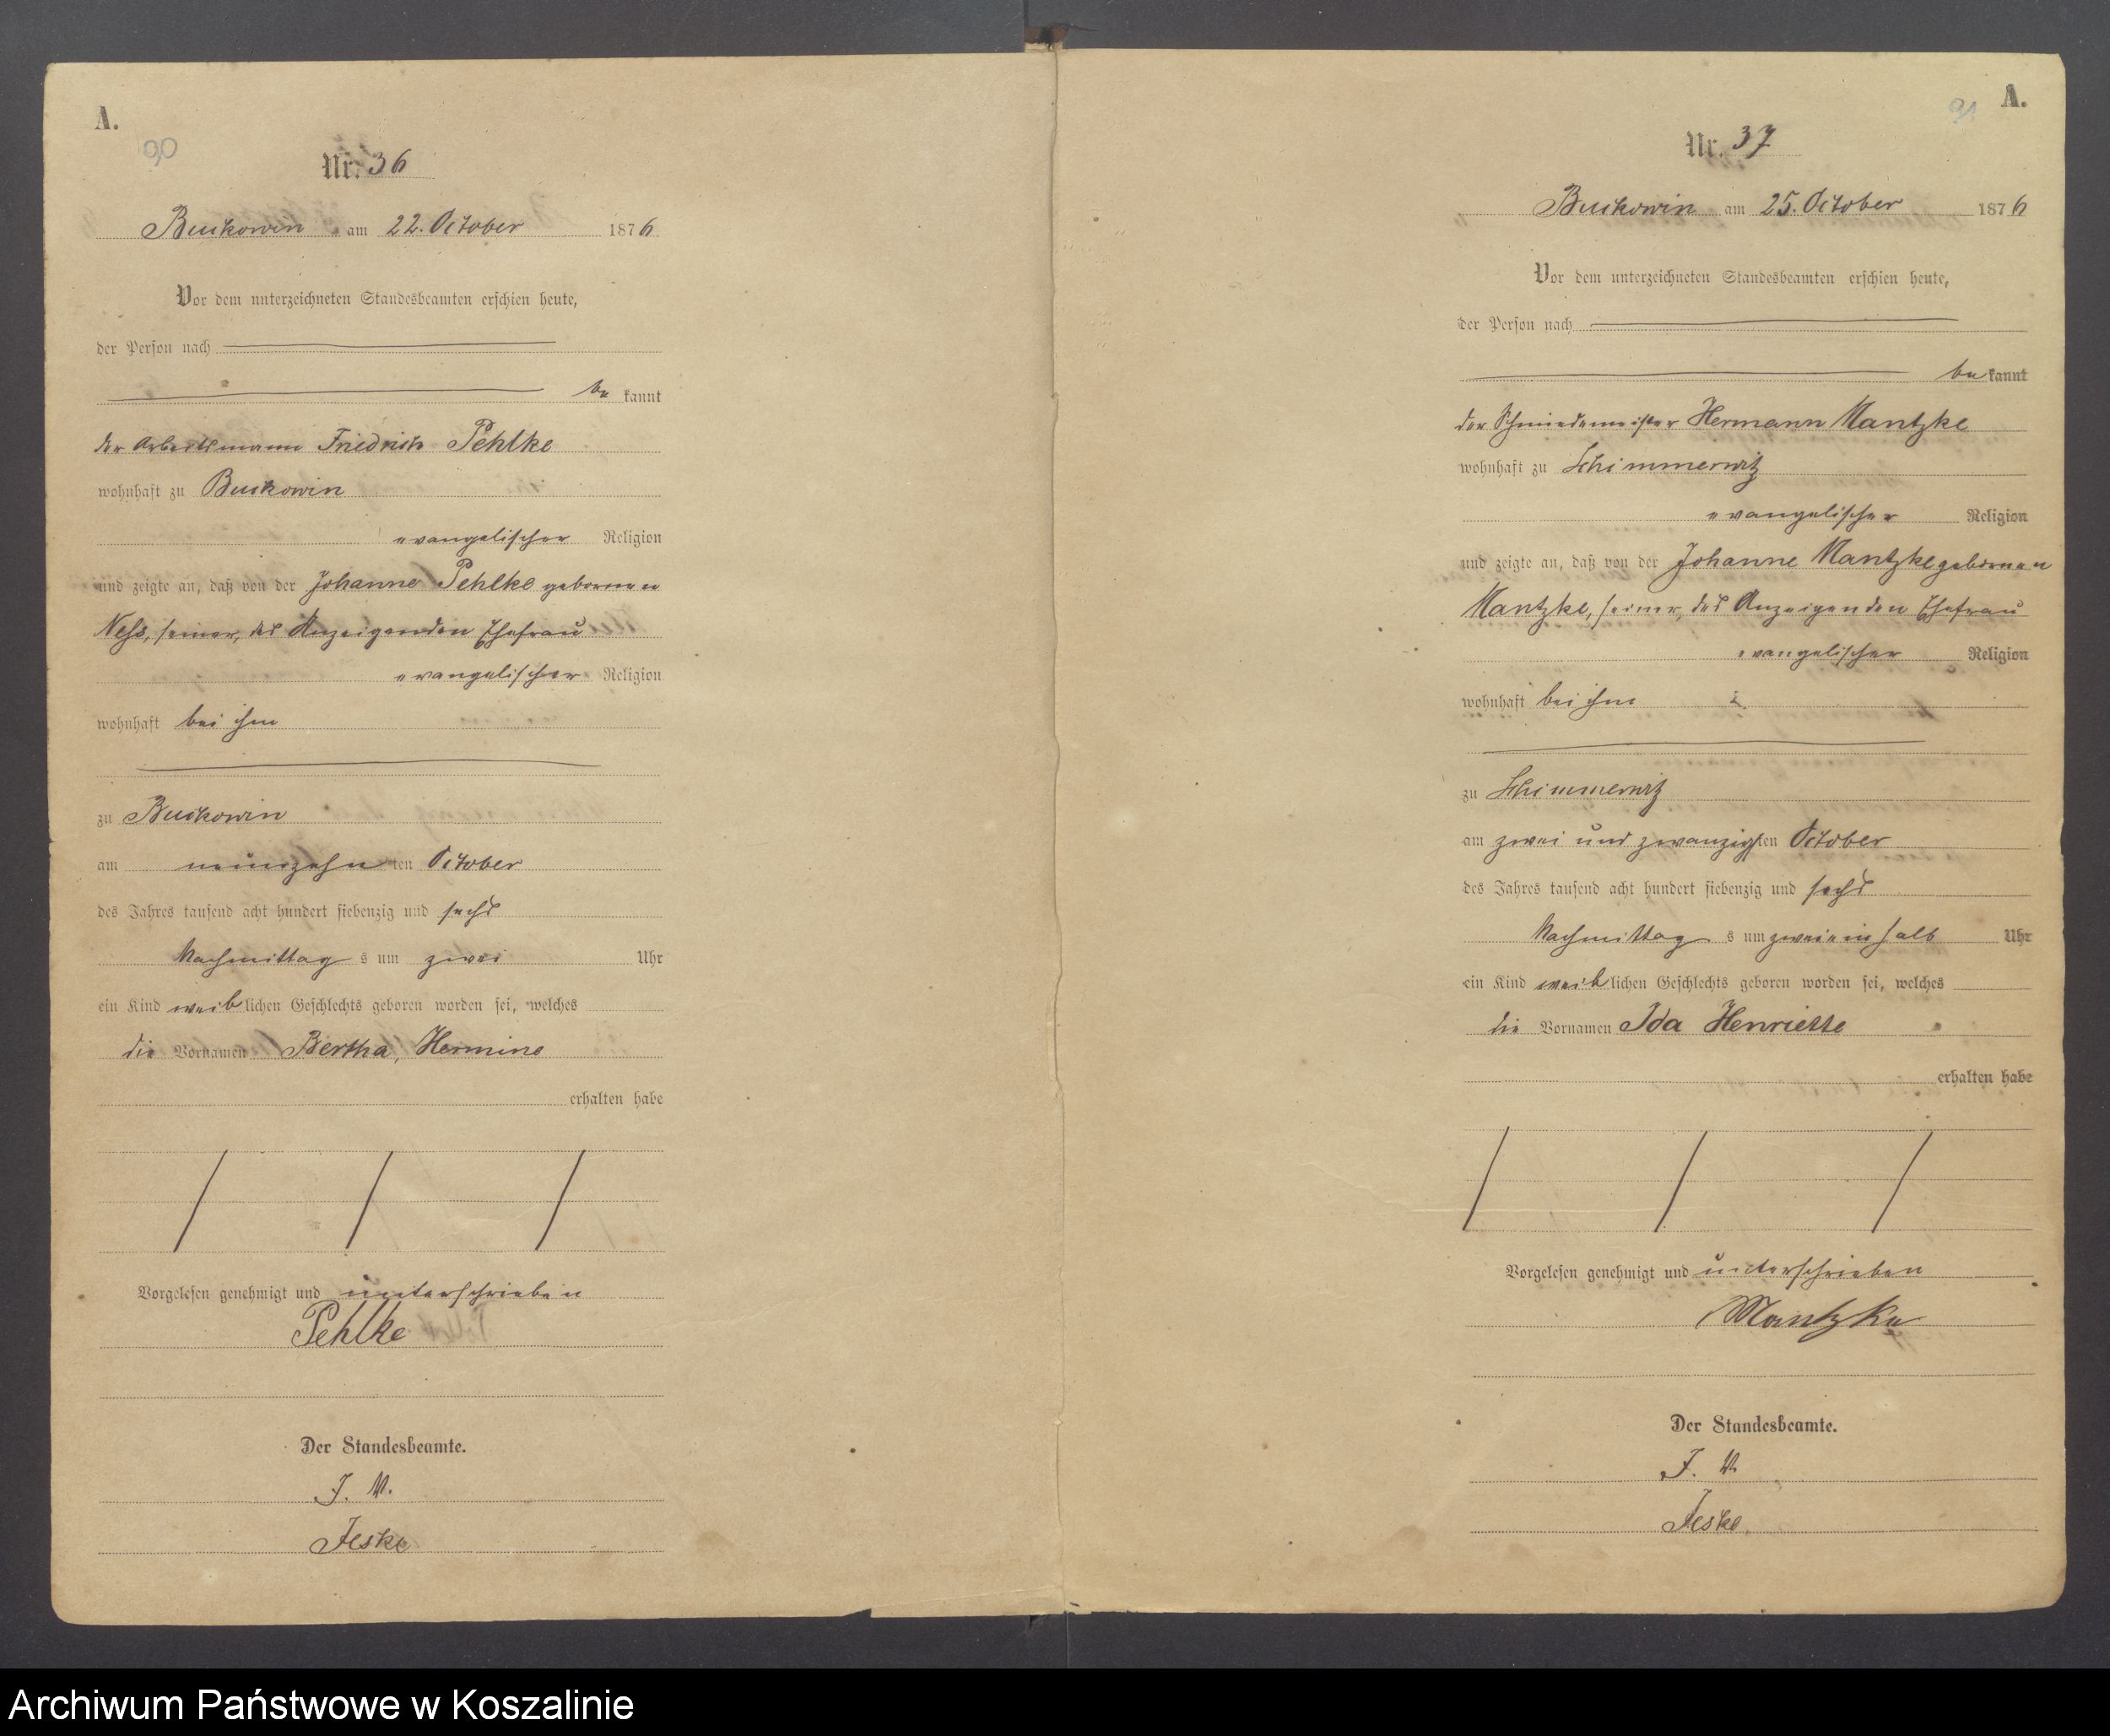 A.
90
Nr. 36
Buckowin am 22. October 1876
Vor dem unterzeichneten Standesbeamten erschien heute,
der Person nach
be kannt
der Arbeitsmann Friedrich Pehlke
wohnhaft zu Buckowin
evangelischer Religion
und zeigte an, daß von der Johanne Pehlke geborenen
Ness, seiner, des Anzeigenden Ehefrau
evangelischer Religion
wohnhaft bei ihm
zu Buckowin
am neunzehn ten October
des Jahres tausend acht hundert siebenzig und sechs
Nachmittag s um zwei Uhr
ein Kind weib lichen Geschlechts geboren worden sei, welches
die Vornamen Bertha, Hermine
erhalten habe
Vorgelesen genehmigt und unterschrieben
Pehlke
Der Standesbeamte.
J. V.
Jeske
A.
91
Nr. 37
Buckowin am 25. October 1876
Vor dem unterzeichneten Standesbeamten erschien heute,
der Person nach
be kannt
der Schmiedemeister Hermann Mantzke
wohnhaft zu Schimmerwitz
evangelischer Religion
und zeigte an, daß von der Johanne Mantzke geborenen
Mantzke, seiner, des Anzeigenden Ehefrau
evangelischer Religion
wohnhaft bei ihm
zu Schimmerwitz
am zwei und zwanzigsten October
des Jahres tausend acht hundert siebenzig und sechs
Nachmittag s um zweieinhalb Uhr
ein Kind weib lichen Geschlechts geboren worden sei, welches
die Vornamen Ida Henriette
erhalten habe
Vorgelesen genehmigt und unterschrieben
Mantzke
Der Standesbeamte.
J. V.
Jeske.
Archiwum Państwowe w Koszalinie